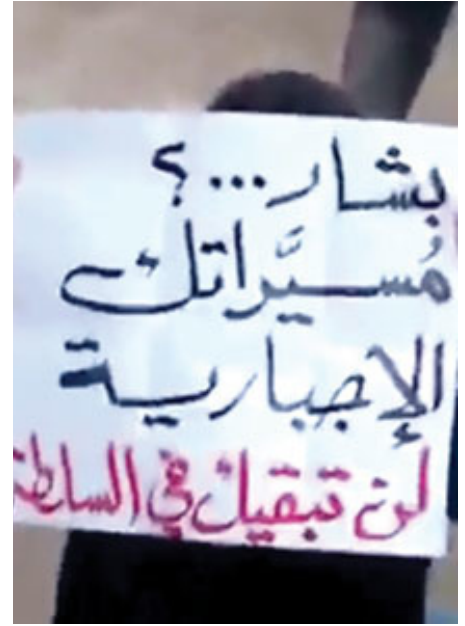 بشار...؟
مُسيَّراتك
الإجبارية
لن تبقيك في السلطة